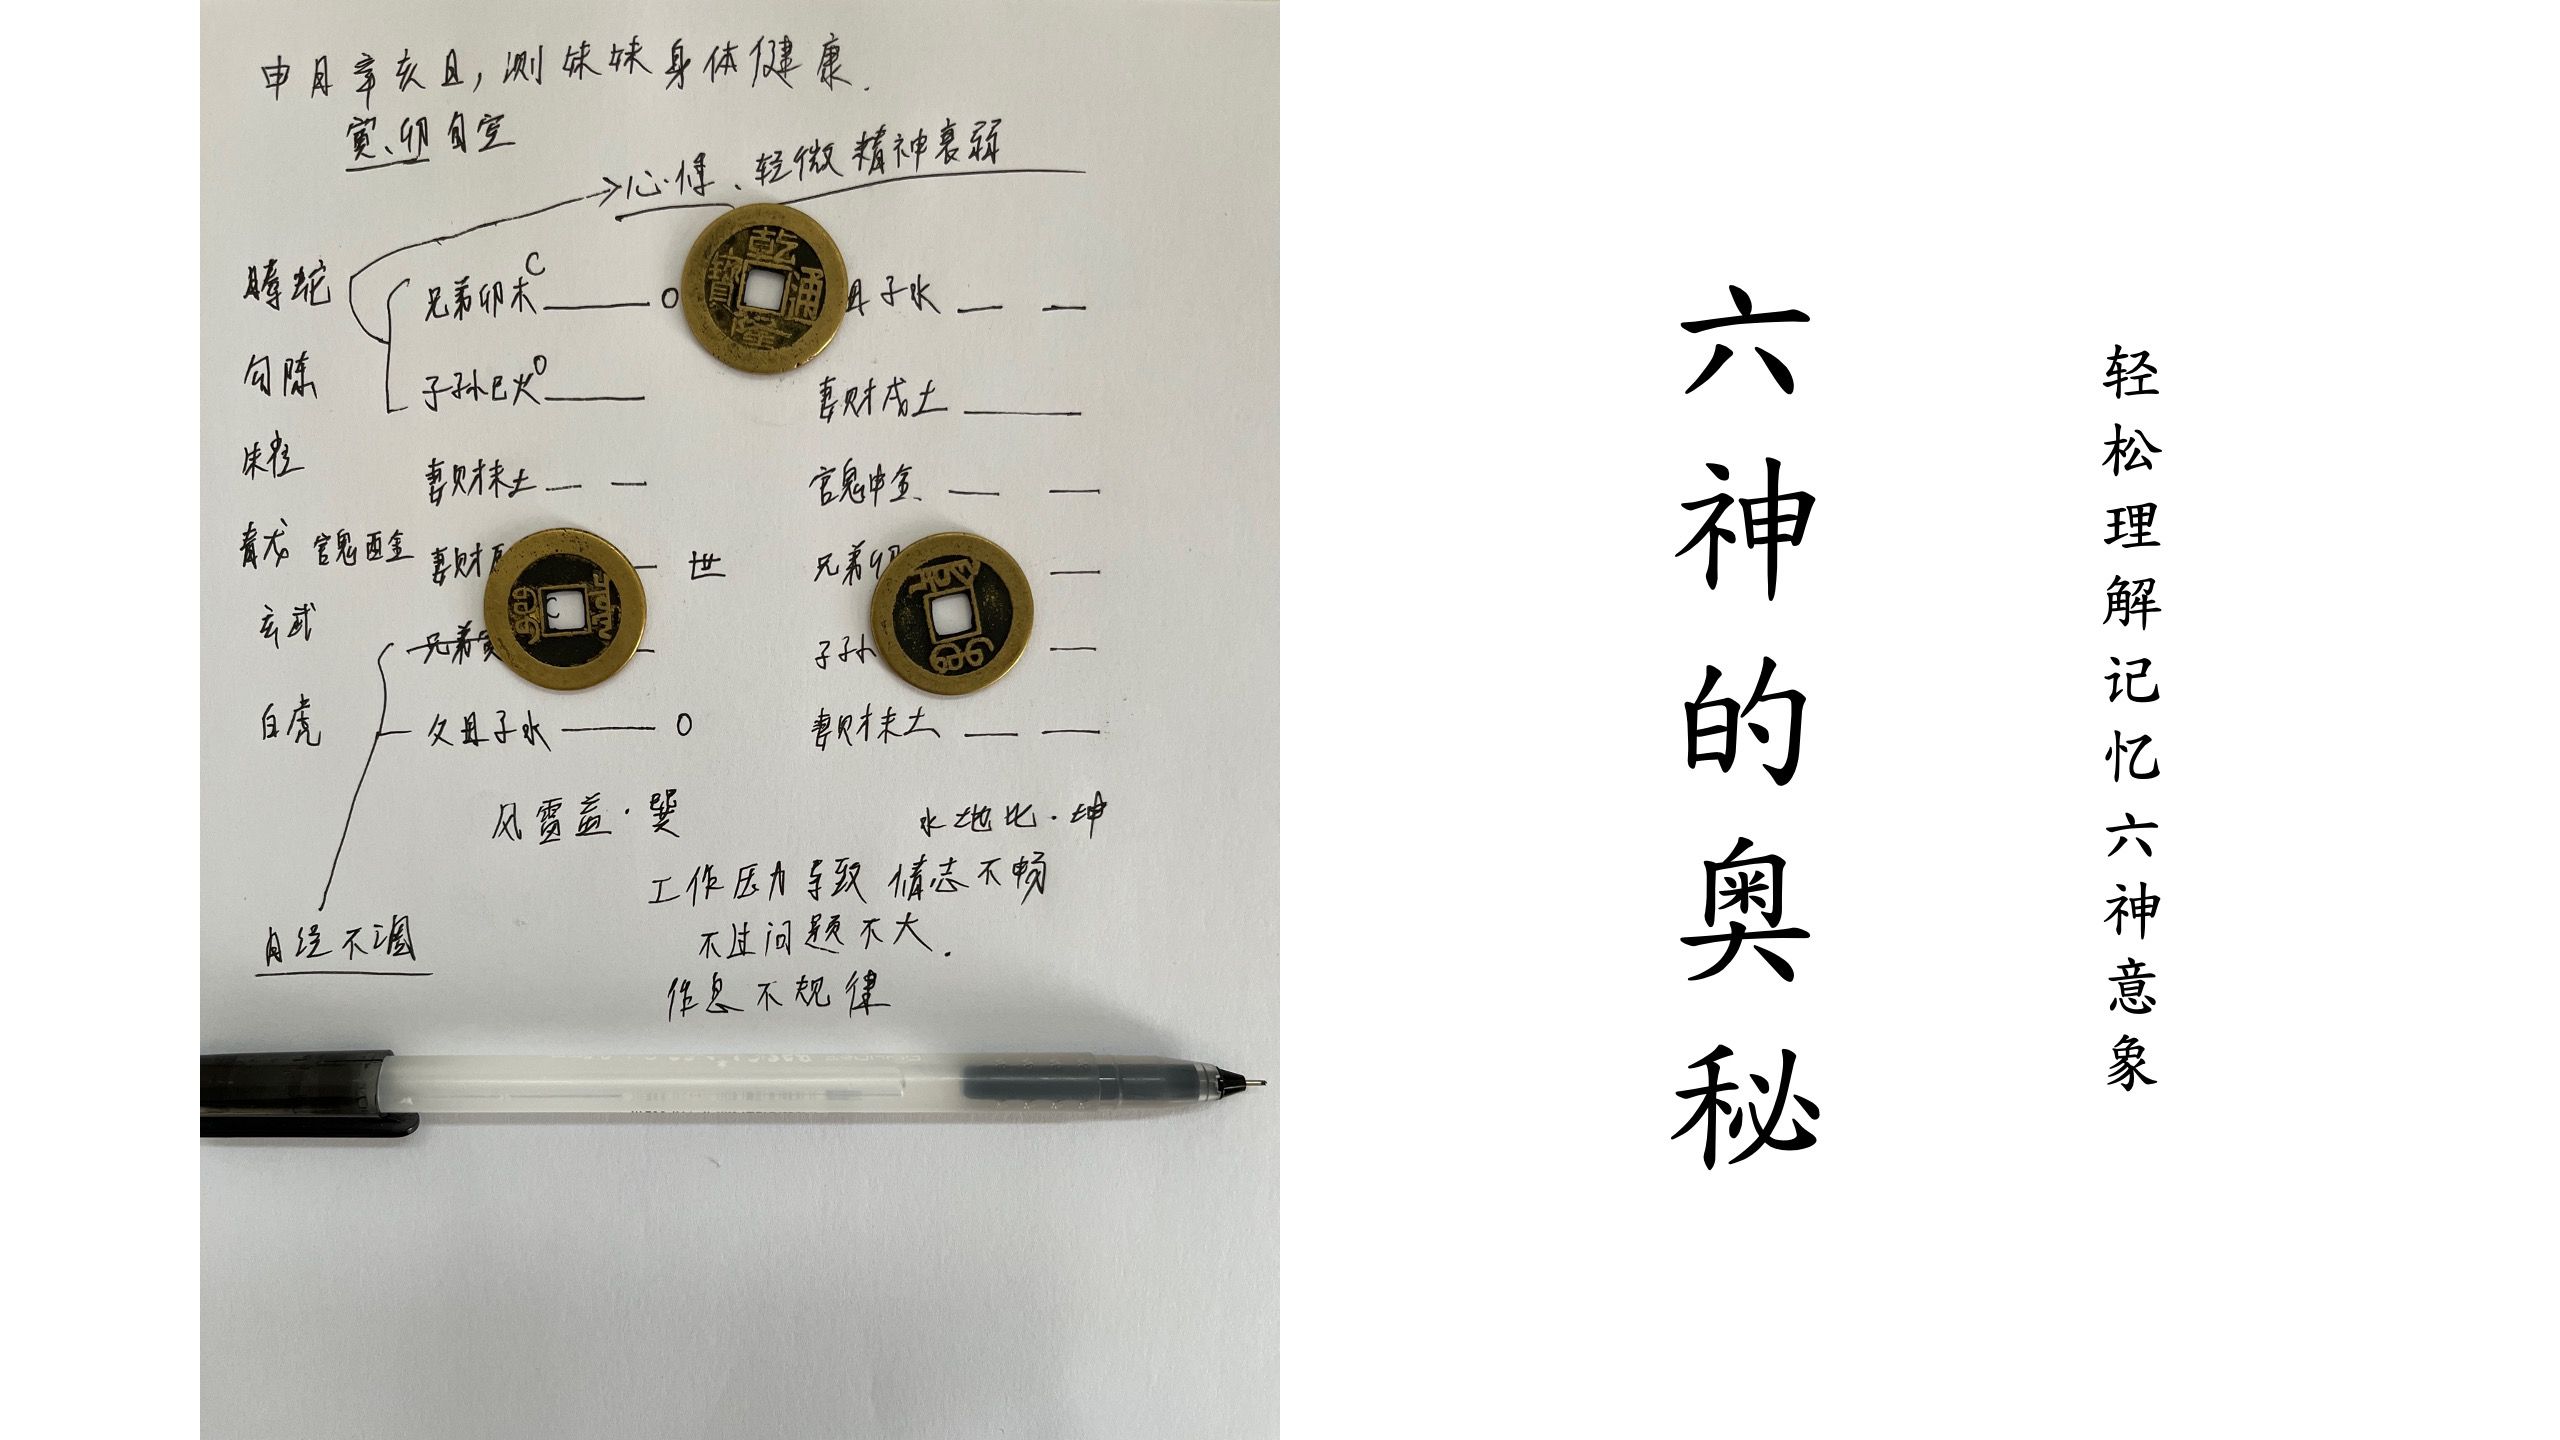 申月辛亥日,测妹妹身体健康.
寅、卯旬空
心悸、轻微精神衰弱
腾蛇 兄弟卯木 C O 母子水
勾陈 子孙巳火 O 妻财戌土
朱雀 妻财未土 官鬼申金
青龙 官鬼酉金 妻财 世 兄弟卯
玄武 兄弟寅 子孙
白虎 父母子水 O 妻财未土
风雷益·巽 水地比·坤
工作压力导致 情志不畅
不过问题不大.
作息不规律
月经不调
乾隆通寶
六神的奥秘
轻松理解记忆六神意象